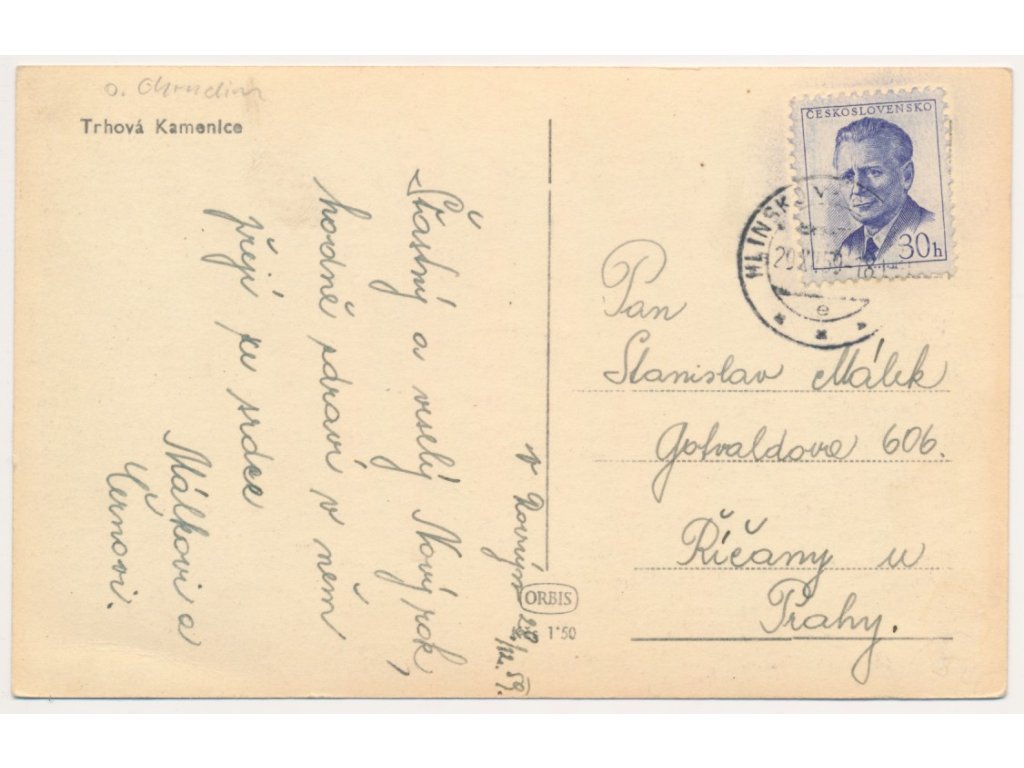 o. Chrudim
Trhová Kamenice
Šťastný a veselý Nový rok,
hodně zdraví v něm
přejí ze srdce
Málkovi a
Černovi.
v Rovným 20/12. 59.
ORBIS
1·50
ČESKOSLOVENSKO
30h
HLINSKO V
e
Pan
Stanislav Málek
Gotvaldova 606.
Říčany u
Prahy.